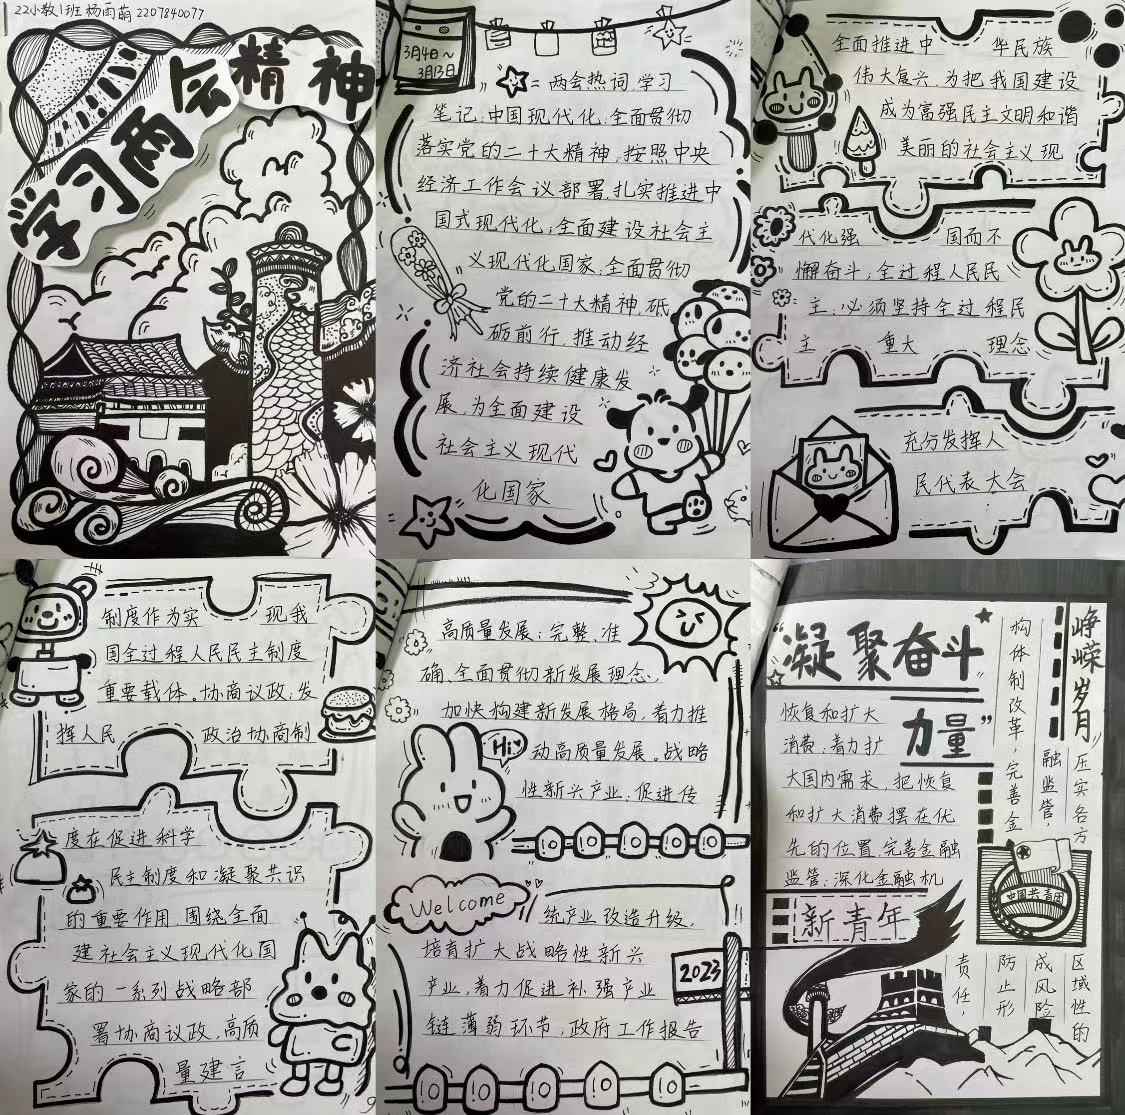 22小教1班 杨雨萌 2207840077
学习两会精神
3月4日~
3月13日
两会热词,学习
笔记:中国现代化:全面贯彻
落实党的二十大精神,按照中央
经济工作会议部署,扎实推进中
国式现代化;全面建设社会主
义现代化国家:全面贯彻
党的二十大精神,砥
砺前行,推动经
济社会持续健康发
展,为全面建设
社会主义现代
化国家
全面推进中 华民族
伟大复兴,为把我国建设
成为富强民主文明和谐
美丽的社会主义现
代化强 国而不
懈奋斗;全过程人民民
主:必须坚持全过程民
主 重大 理念
充分发挥人
民代表大会
制度作为实 现我
国全过程人民民主制度
重要载体。协商议政:发
挥人民 政治协商制
度在促进科学
民主制度和凝聚共识
的重要作用,围绕全面
建社会主义现代化国
家的一系列战略部
署协商议政,高质
量建言
高质量发展:完整、准
确、全面贯彻新发展理念,
加快构建新发展格局,着力推
动高质量发展。战略
性新兴产业:促进传
Hi
Welcome
统产业改造升级,
培育扩大战略性新兴
产业,着力促进补强产业
链薄弱环节,政府工作报告
2023
“凝聚奋斗
力量”
恢复和扩大
消费:着力扩
大国内需求,把恢复
和扩大消费摆在优
先的位置,完善金融
监管:深化金融机
构体制改革,完善金
融监管,
峥嵘岁月
压实各方
责任,
防止形
成风险
区域性的
新青年
中国共青团